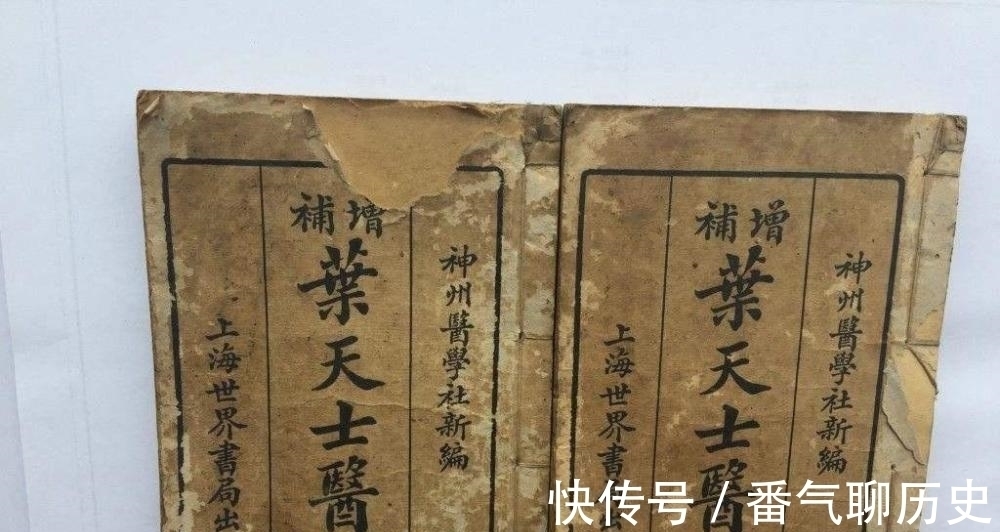 神州醫學社新編
增補
葉天士醫
上海世界書局出
神州醫學社新編
增補
葉天士醫
上海世界書
快传号 / 番气聊历史